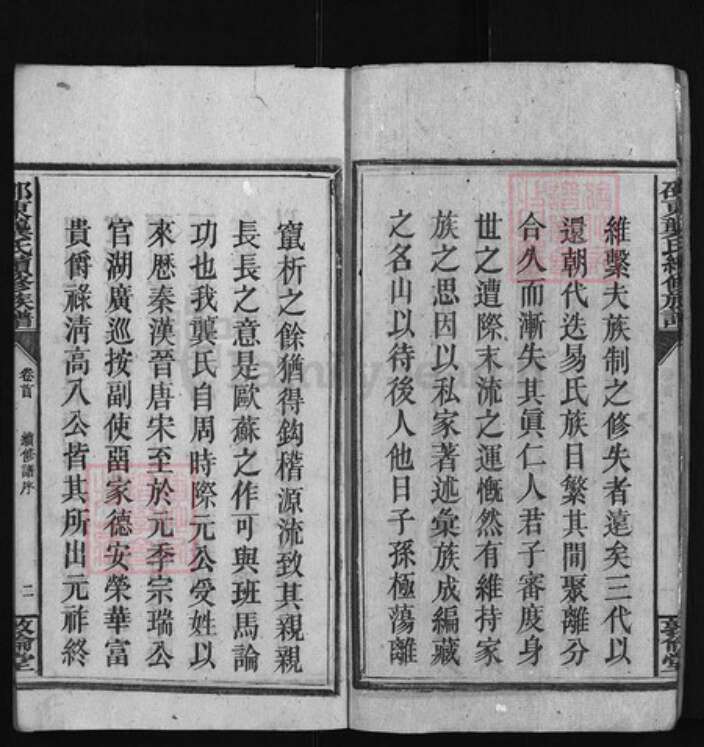 邵東龔氏續修族譜
維繫夫族制之修失者遠矣三代以
還朝代迭易氏族日繁其間聚離分
合久而漸失其眞仁人君子審度身
世之遭際末流之運慨然有維持家
族之思因以私家著述彙族成編藏
之名山以待後人他日子孫極蕩離
竄析之餘猶得鈎稽源流致其親親
長長之意是歐蘇之作可與班馬論
功也我龔氏自周時際元公受姓以
來歷秦漢晉唐宋至於元季宗瑞公
官湖廣巡按副使畱家德安榮華富
貴爵祿淸高八公皆其所出元祚終
邵東龔氏續修族譜
卷首
續修譜序
二
敦倫堂